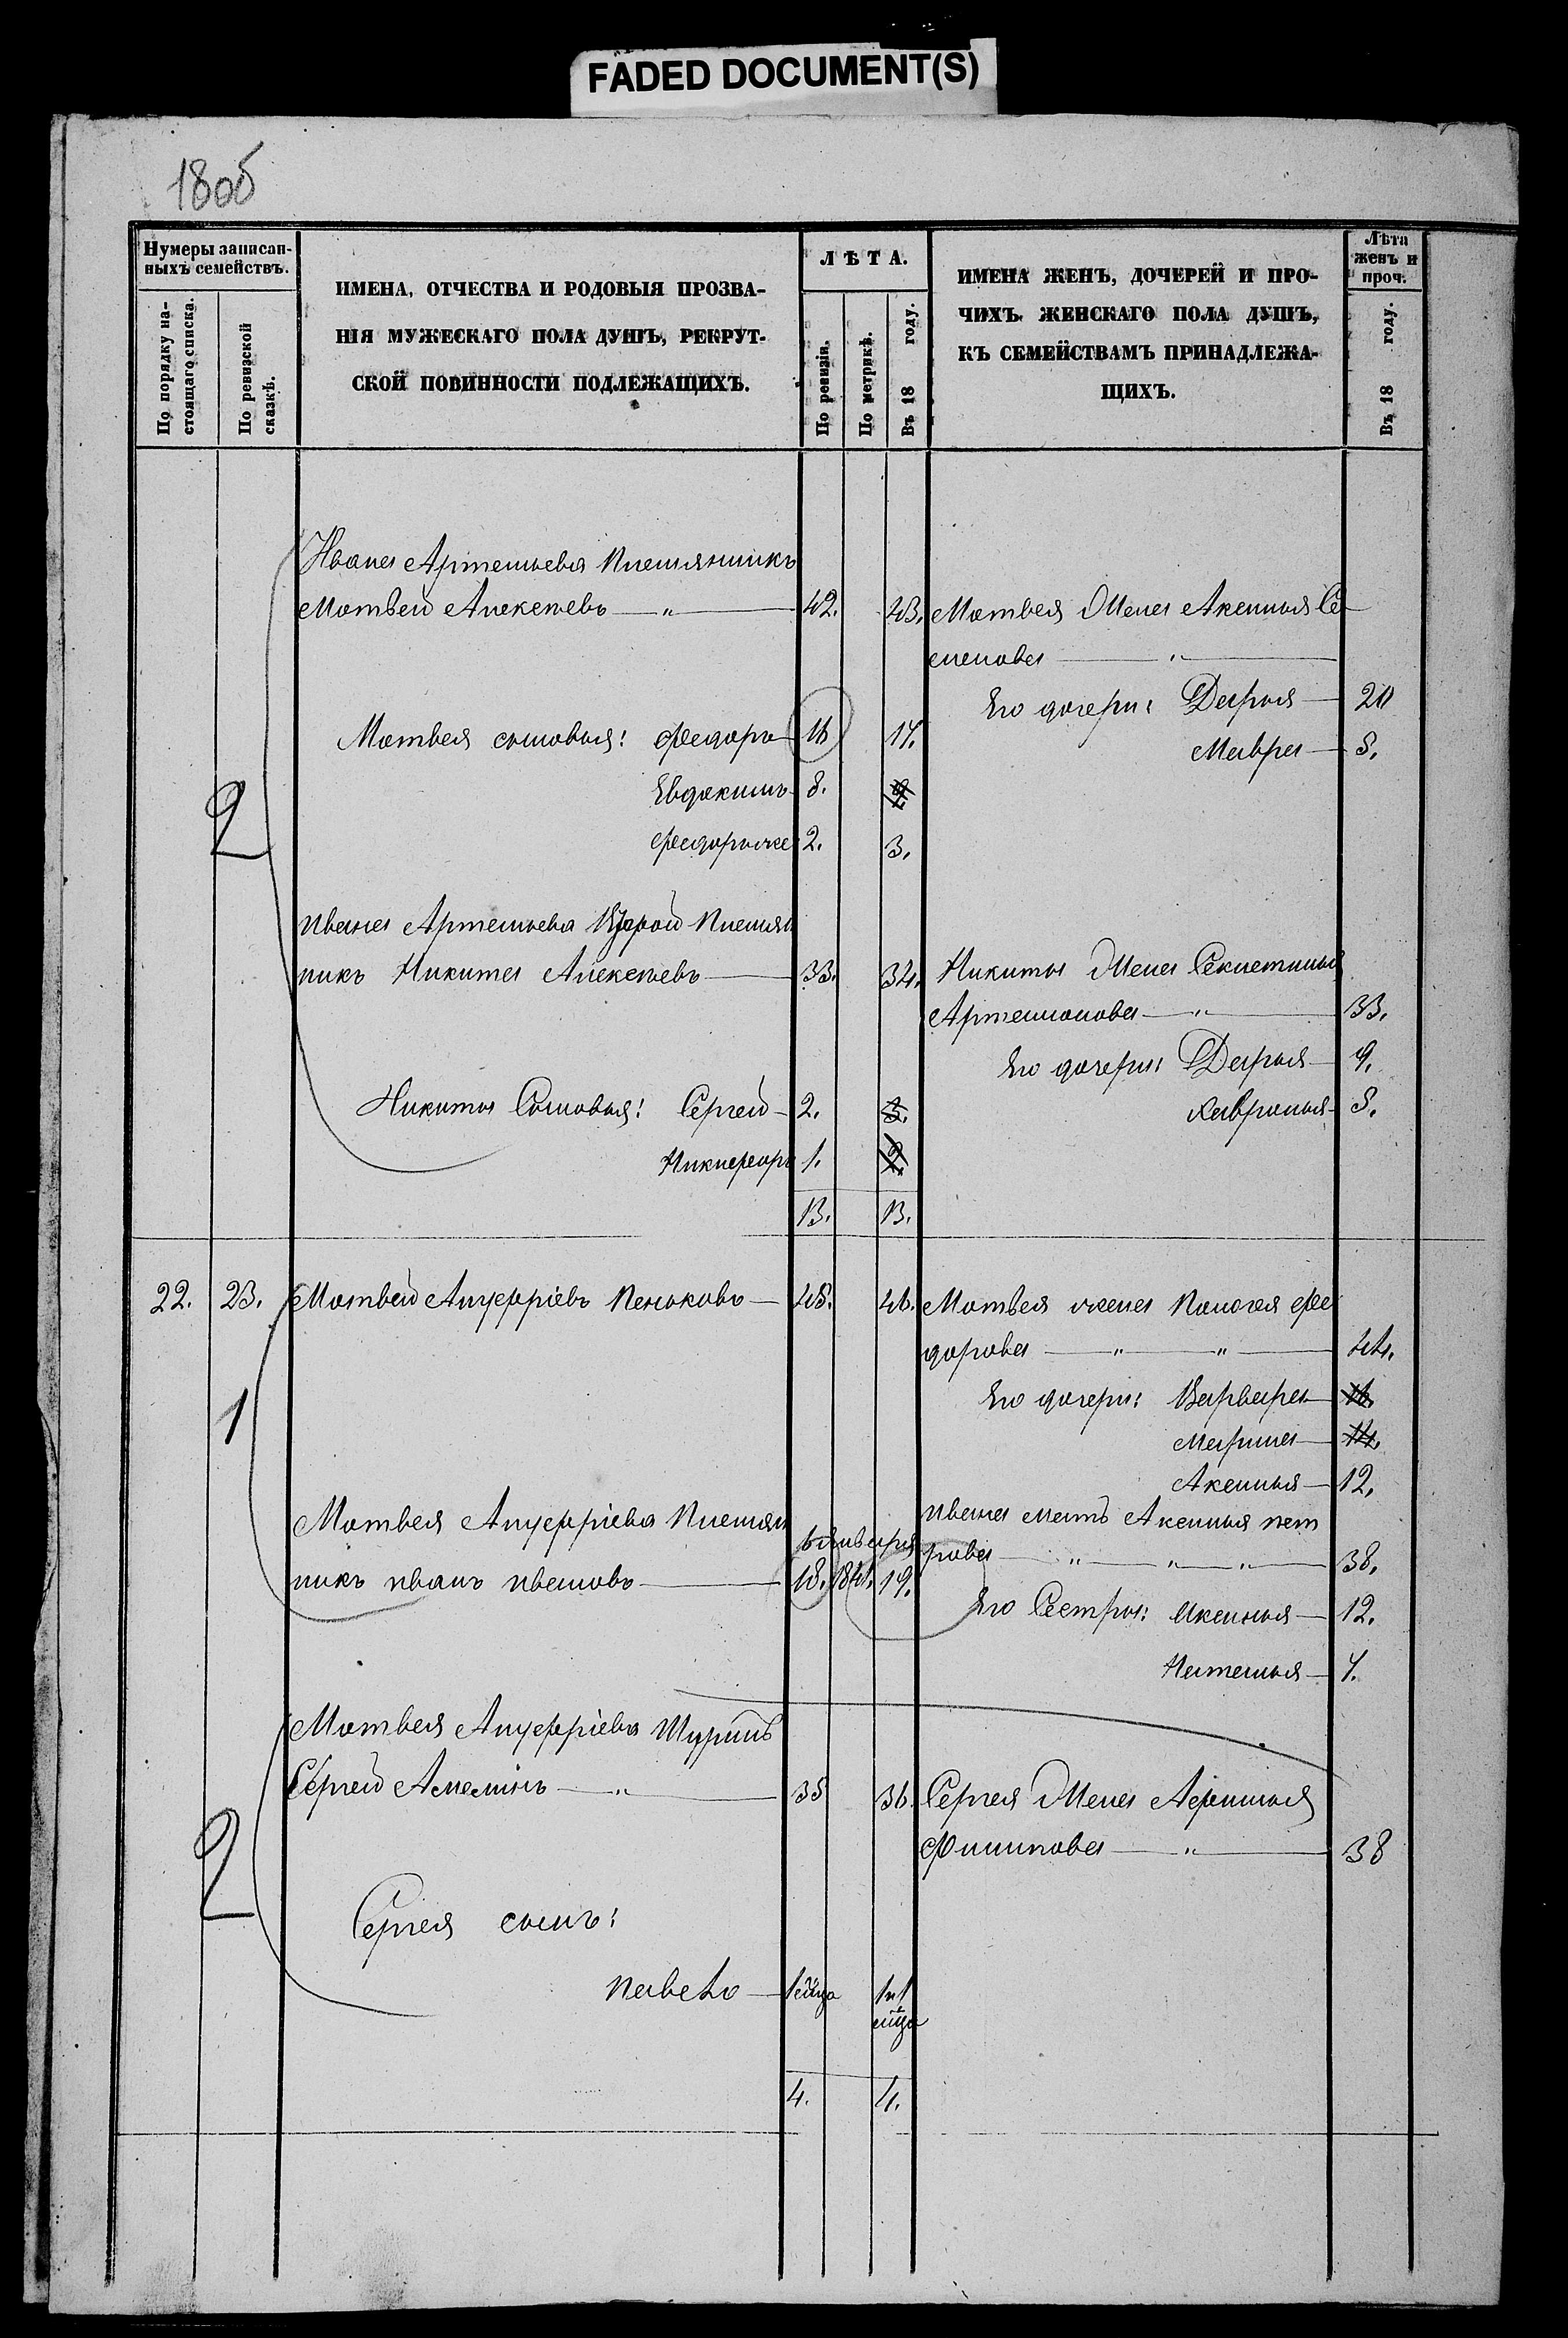 FADED DOCUMENT(S)
1806
Нумеры записан-
ныхъ семействъ.
По порядку на-
стоящаго списка.
По ревизской
сказкѣ.
ИМЕНА, ОТЧЕСТВА И РОДОВЫЯ ПРОЗВА-
НІЯ МУЖЕСКАГО ПОЛА ДУШЪ, РЕКРУТ-
СКОЙ ПОВИННОСТИ ПОДЛЕЖАЩИХЪ.
ЛѢТА.
По ревизіи.
По метрикѣ.
Въ 18 году.
ИМЕНА ЖЕНЪ, ДОЧЕРЕЙ И ПРО-
ЧИХЪ ЖЕНСКАГО ПОЛА ДУШЪ,
КЪ СЕМЕЙСТВАМЪ ПРИНАДЛЕЖА-
ЩИХЪ.
Лѣта
женъ и
проч.
Въ 18 году.
Ивана Артемьева племянникъ
Матвей Алексѣевъ — " — 42. 43. Матвея Жена Аксинья Се-
менова — " —
Его дочери: Дарья — 20
Матвея сыновья: Федоръ 16 17. Мавра — 5.
Евдокимъ 8. 9.
2
Федоръ же 2. 3.
Ивана Артемьева Второй племян
никъ Никита Алексѣевъ — 33. 34. Никиты Жена
Артемонова — " — 33.
Его дочери: Дарья — 9.
Никиты Сыновья: Сергей — 2. 3. Хавронья — 5.
Никифоръ 1. 2.
13. 13.
22. 23. Матвей Ануфріевъ Пеньковъ — 45. 46. Матвея жена Палагея Фе
дорова — " — " — 44.
Его дочери: Варвара — 16.
1 Марина — 14.
Аксинья — 12.
Матвея Ануфріева племян Ивана мать Аксинья пет
января рова — " — " — " — 38.
никъ Иванъ Ивановъ — 18. 1841. 19.
Его Сестры: Аксинья — 12.
Наталья — 7.
Матвея Ануфріева Шуринъ
Сергей Амелинъ — " — 35 36. Сергея Жена Афимья
Филипова — " — 38
2
Сергея сынъ:
Павелъ —
4. 4.